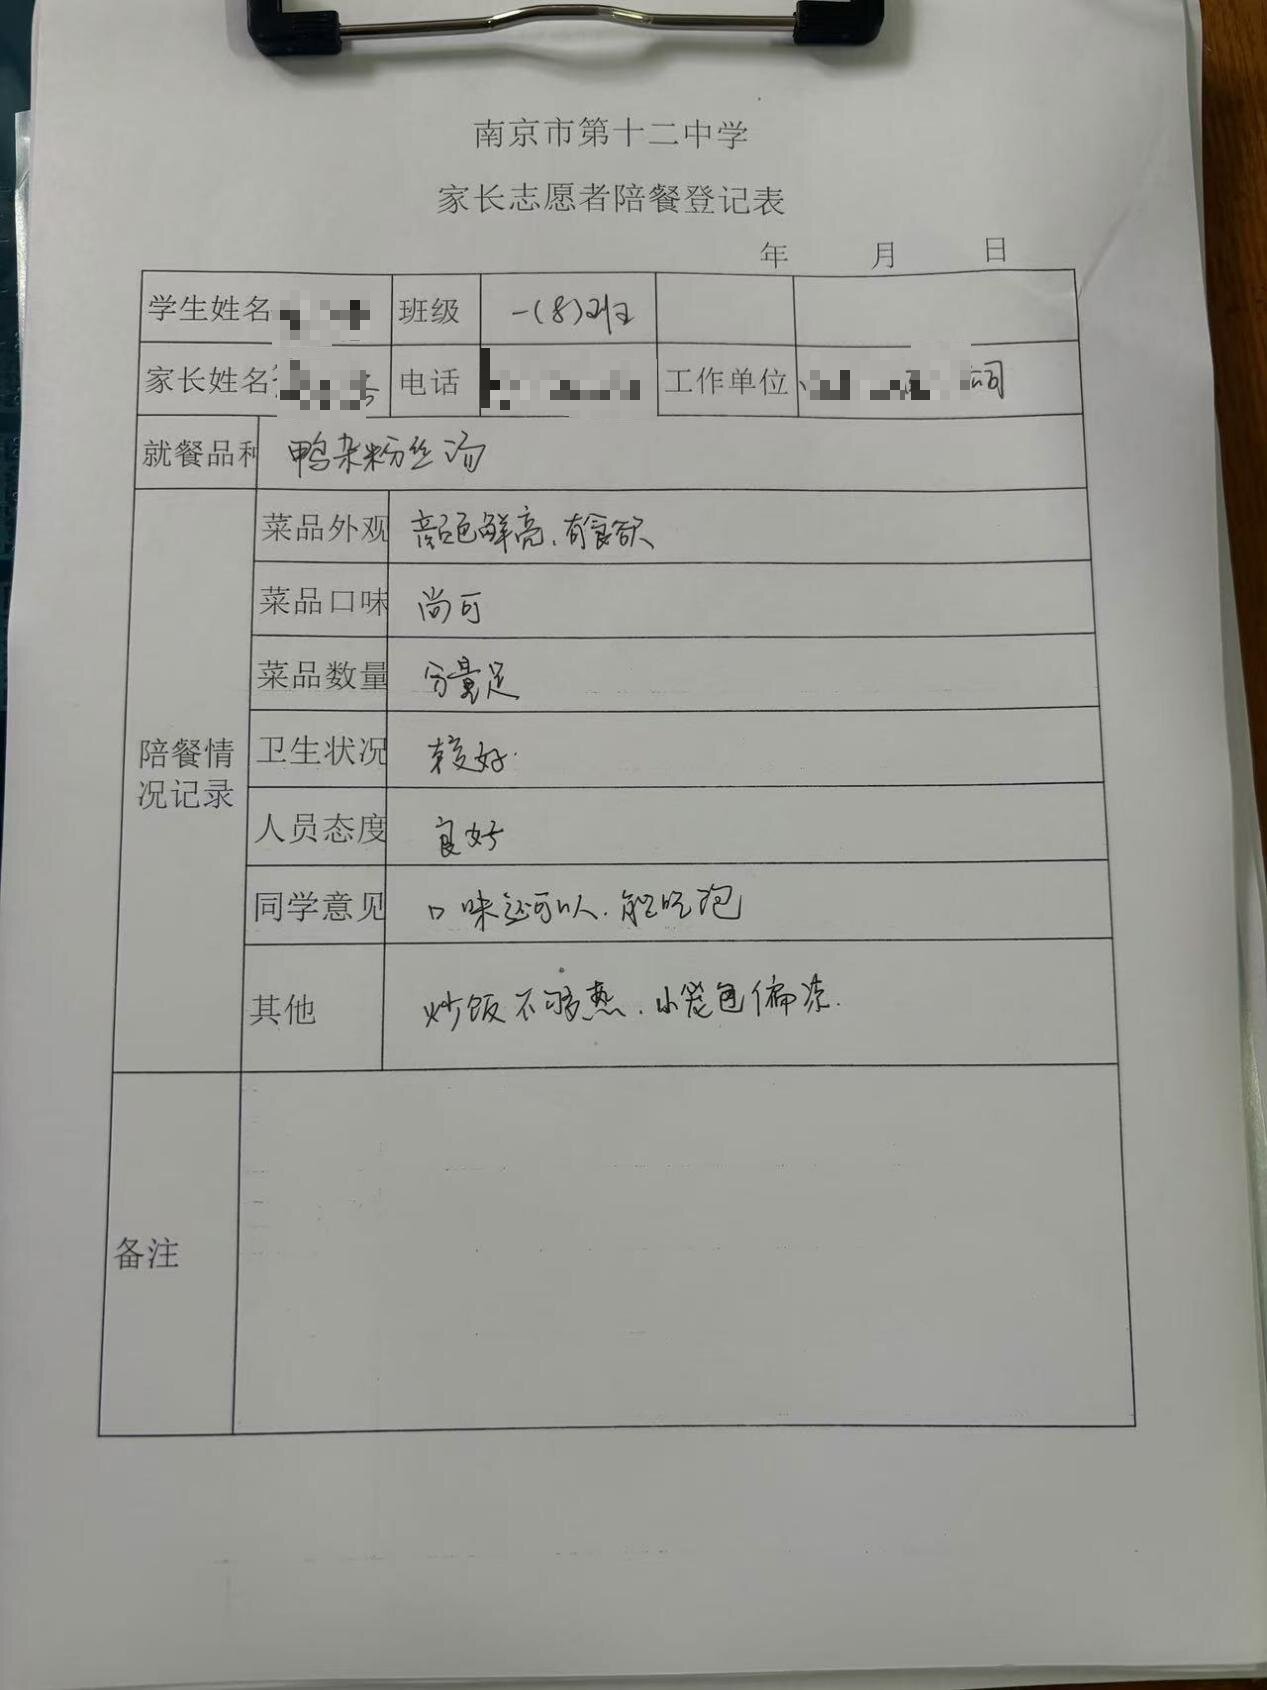 南京市第十二中学
家长志愿者陪餐登记表
年 月 日
学生姓名 班级 一(8)班
家长姓名 电话 工作单位 公司
就餐品种 鸭杂粉丝汤
陪餐情
况记录
菜品外观 颜色鲜亮、有食欲
菜品口味 尚可
菜品数量 分量足
卫生状况 较好.
人员态度 良好
同学意见 口味还可以、能吃饱
其他 炒饭不够热、小笼包偏凉.
备注